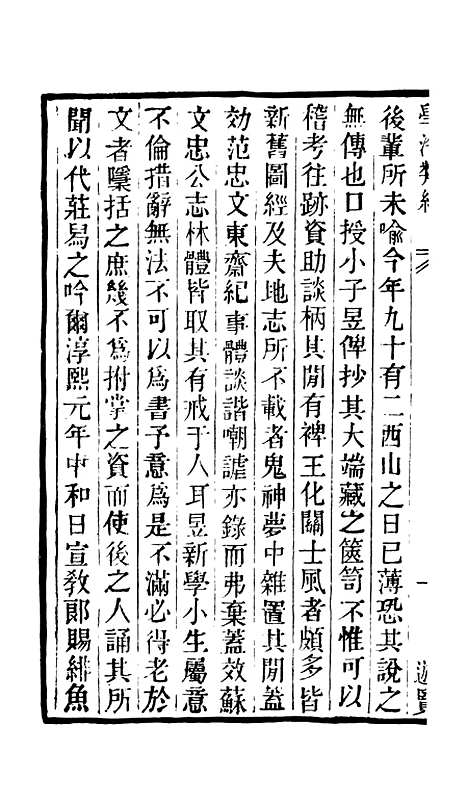 後輩所未喻今年九十有二西山之日已薄恐其說之
無傳也口授小子昱俾抄其大端藏之篋笥不惟可以
稽考往跡資助談柄其閒有裨王化關士風者頗多皆
新舊圖經及夫地志所不載者鬼神夢中雜置其閒蓋
効范忠文東齋紀事體談諧嘲謔亦錄而弗棄蓋效蘇
文忠公志林體皆取其有戒于人耳昱新學小生屬意
不倫措辭無法不可以爲書予意爲是不滿必得老於
文者檃括之庶幾不爲拊掌之資而使後之人誦其所
聞以代莊舄之吟爾淳熙元年中和日宣敎郞賜緋魚